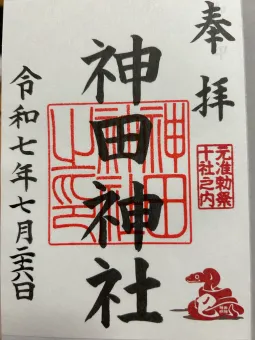 奉拝
元准勅祭
十社之内
神田神社
神田
神社
之印
令和七年七月二十六日